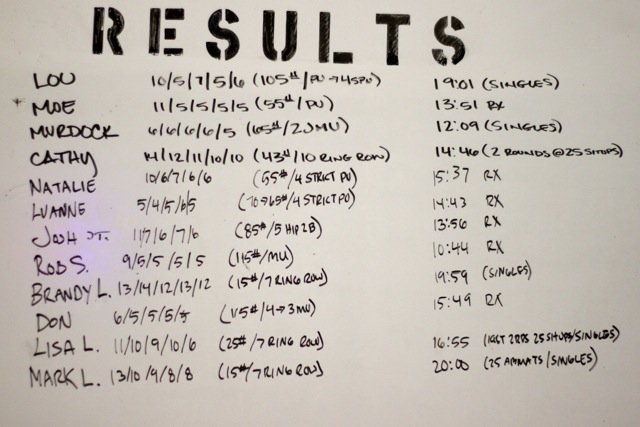 RESULTS
LOU 10/5/7/5/6 (105#/PU→45PU) 19:01 (SINGLES)
* MOE 11/5/5/5/5 (55#/PU) 13:51 RX
MURDOCK 6/6/6/6/5 (65#/2JMU) 12:09 (SINGLES)
CATHY 14/12/11/10/10 (43#/10 RING ROW) 14:46 (2 ROUNDS @ 25 SITUPS)
NATALIE 10/6/7/6/6 (55#/4 STRICT PU) 15:37 RX
LUANNE 5/4/5/6/5 (70→65#/4 STRICT PU) 14:43 RX
JOSH JT. 11/7/6/7/6 (85#/5 HIP2B) 13:56 RX
ROB S. 9/5/5/5/5 (115#/MU) 10:44 RX
BRANDY L. 13/14/12/13/12 (15#/7 RING ROW) 19:59 (SINGLES)
DON 6/5/5/5/5 (115#/4→3MU) 15:49 RX
LISA L. 11/10/9/10/6 (25#/7 RING ROW) 16:55 (LAST 2 RDS 25 SITUPS/SINGLES)
MARK L. 13/10/9/8/8 (15#/7 RING ROW) 20:00 (25 ABMATS/SINGLES)